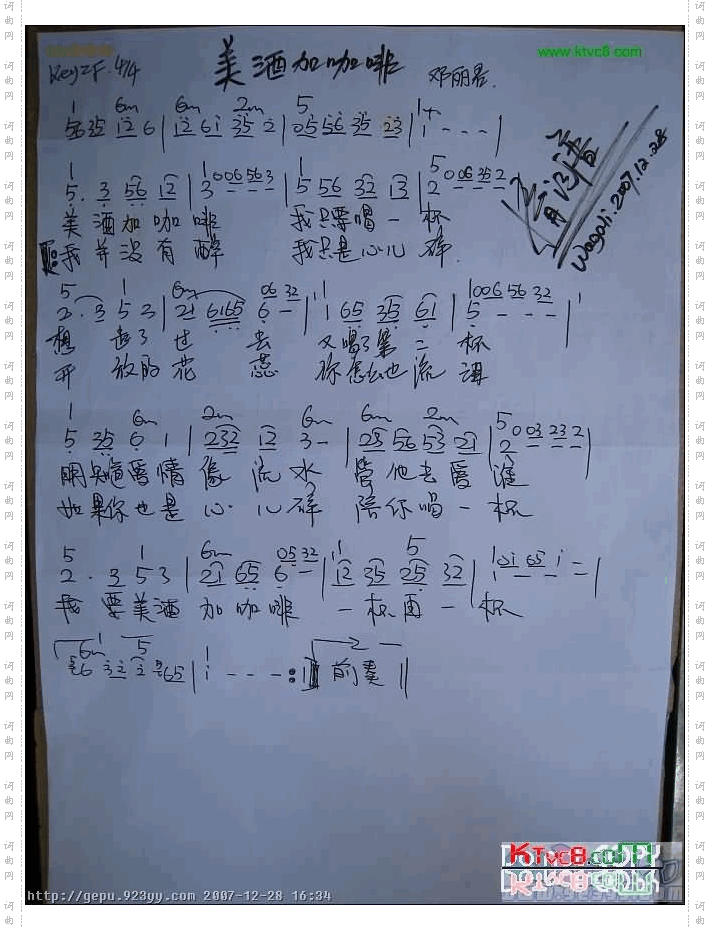 美酒加咖啡
www.ktvc8.com
Key=F 4/4
邓丽君.
1 6m 6m 2m 5 1+
5635 12 6 | 12 61 35 2 | 05 56 35 23 | 1 - - - |
Wagali.2007.12.28
1 1 1 5
5. 3 56 12 | 3 006563 | 5 56 32 13 | 2 006352 |
美酒加咖啡 我只要喝一杯
我并没有醉 我只是心儿碎.
5 1 6m 06 32 1 1006 56 32
2. 3 5 3 | 21 6165 6 - | 1 65 35 61 | 5 - - - |
想起了过去 又喝了第二杯
开放的花蕊 你怎么也流泪
1 6m 2m 6m 6m 2m 5
5 35 6 1 | 232 12 3- | 23 56 53 21 | 2 003 23 2 |
明知道爱情像流水 管他去爱谁
如果你也是心儿碎 陪你喝一杯
5 1 6m 05 32 1 5
2. 3 5 3 | 21 65 6 - | 12 35 25 32 | 1 01 65 1 - |
我要美酒加咖啡 一杯再一杯
6m 1 5 1 2
56 32 2 65 | 1 - - - :|| 前奏 ||
KTvc8.com
http://gepu.923yy.com 2007-12-28 16:34
词曲网